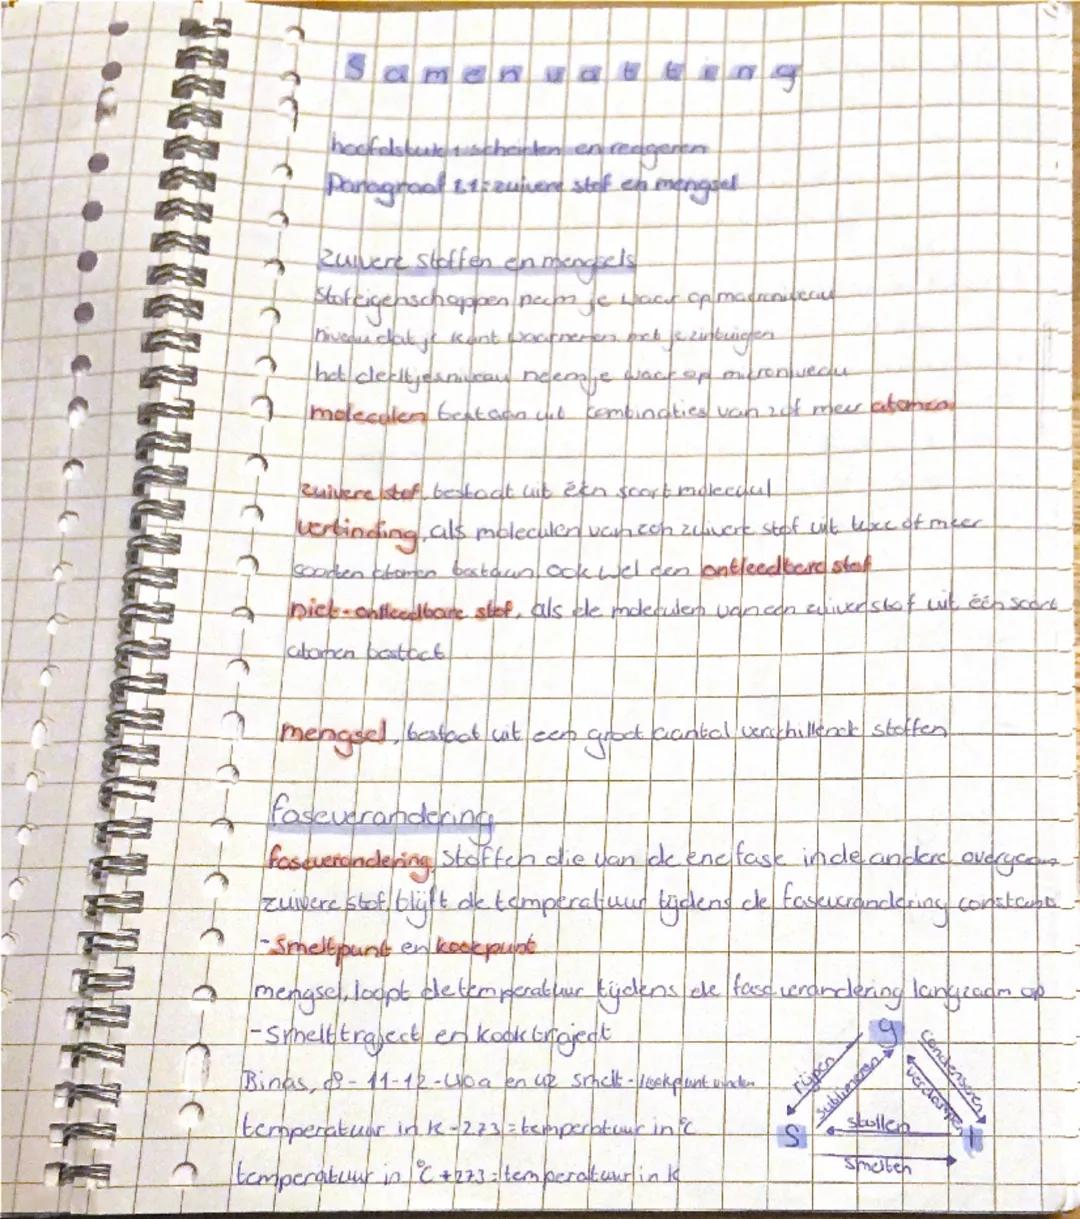 Samenvatting
hoofdstuk 1 scheiden en reageren
Paragraaf 1.1: zuivere stof en mengsel
zuivere stoffen en mengsels
Stofeigenschappen neem je waar op macroniveau
niveau dat je kunt waarnemen met je zintuigen
het deeltjesniveau neem je waar op microniveau
moleculen bestaan uit combinaties van 2 of meer atomen
zuivere stof, bestaat uit één soort molecuul
verbinding, als moleculen van een zuivere stof uit twee of meer
soorten atomen bestaan, ook wel een ontleedbare stof
niet-ontleedbare stof, als de moleculen van een zuiver stof uit één soort
atomen bestaat
mengsel, bestaat uit een groot aantal verschillende stoffen
faseverandering
faseverandering, stoffen die van de ene fase in de andere overgaan
zuivere stof blijft de temperatuur tijdens de faseverandering constant
-smeltpunt en kookpunt
mengsel, loopt de temperatuur tijdens de faseverandering langzaam op
-smelttraject en kooktraject
Binas, 8-11-12-40a en 42 smelt-kookpunt vinden
temperatuur in K-273=temperatuur in °C
temperatuur in °C+273=temperatuur in K
g
rijpen
sublimeren
condenseren
verdampen
s
stollen
l
smelten